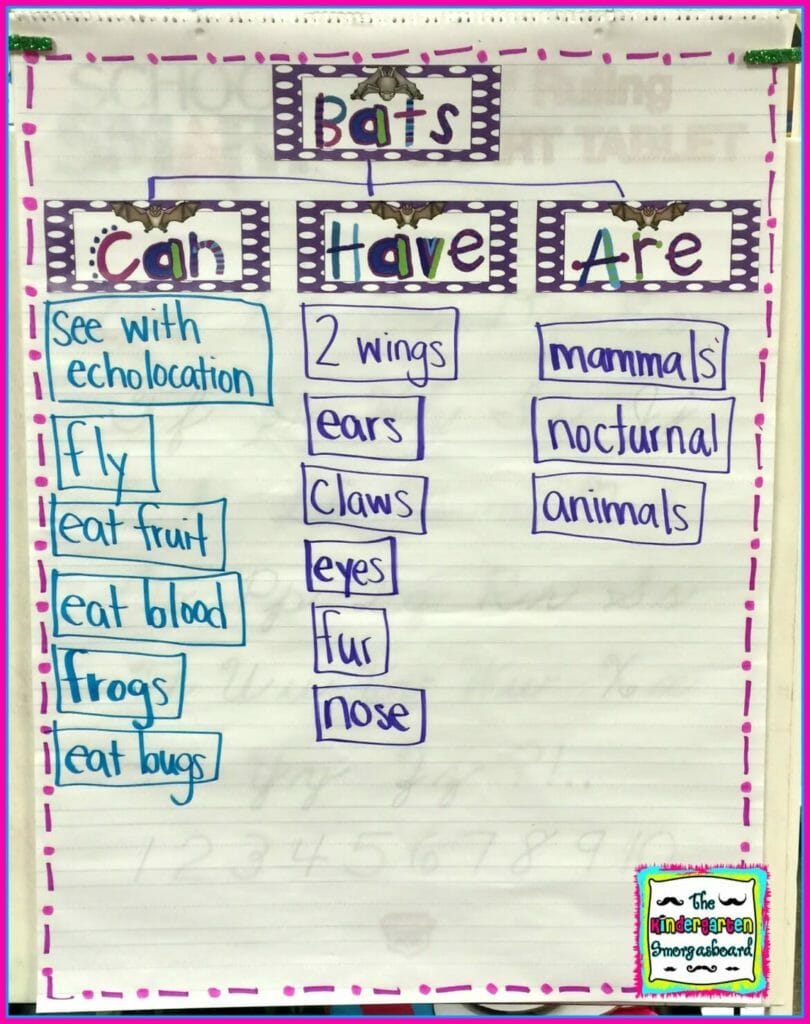 Bats
Can
Have
Are
see with
echolocation
fly
eat fruit
eat blood
frogs
eat bugs
2 wings
ears
claws
eyes
fur
nose
mammals
nocturnal
animals
1 2 3 4 5 6 7 8 9 10
The
Kindergarten
Smorgasboard